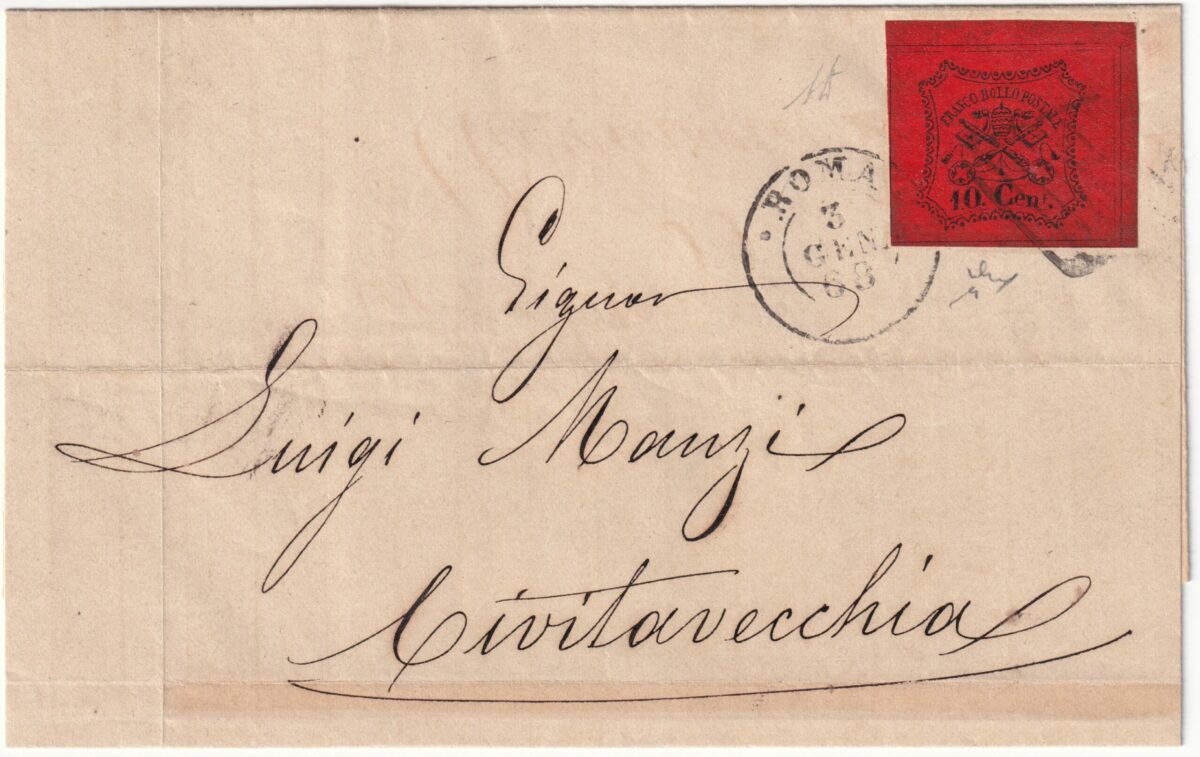 FRANCO BOLLO POSTALE
10. Cent.
ROMA
3
GEN.
68
Signor
Luigi Manzi
Civitavecchia